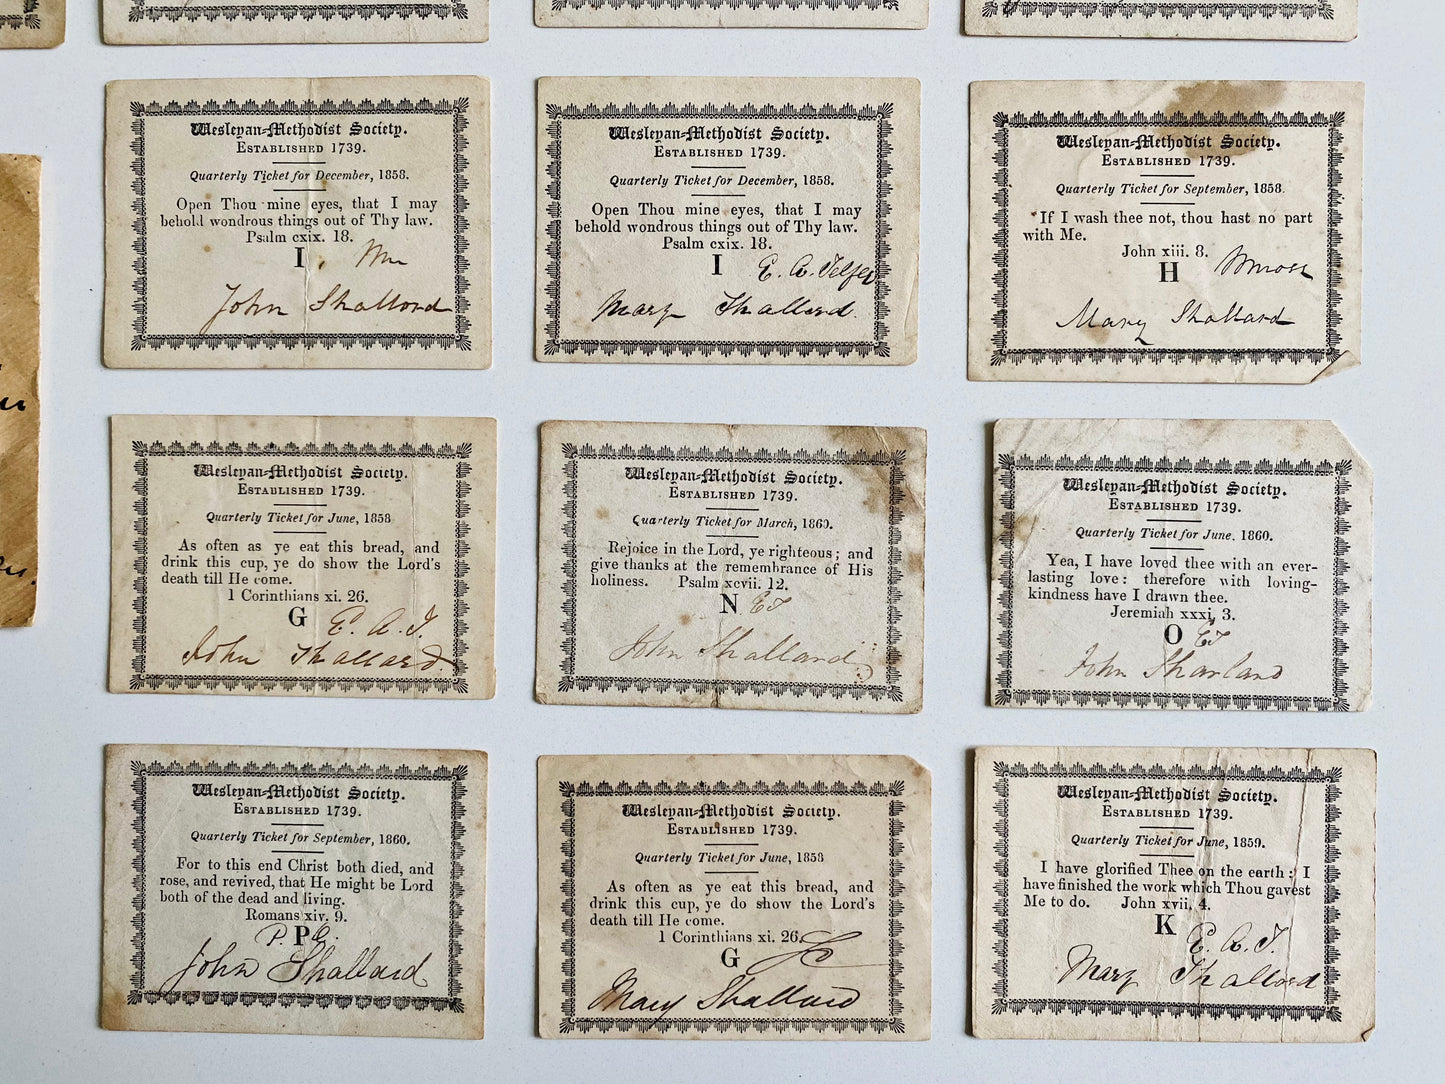 Wesleyan=Methodist Society.
ESTABLISHED 1739.
Quarterly Ticket for December, 1858.
Open Thou mine eyes, that I may
behold wondrous things out of Thy law.
Psalm cxix. 18.
I
John Shallard
Wesleyan=Methodist Society.
ESTABLISHED 1739.
Quarterly Ticket for December, 1858.
Open Thou mine eyes, that I may
behold wondrous things out of Thy law.
Psalm cxix. 18.
I E. A. Telfer
Mary Shallard.
Wesleyan=Methodist Society.
ESTABLISHED 1739.
Quarterly Ticket for September, 1858.
If I wash thee not, thou hast no part
with Me.
John xiii. 8.
H
Mary Shallard
Wesleyan=Methodist Society.
ESTABLISHED 1739.
Quarterly Ticket for June, 1858
As often as ye eat this bread, and
drink this cup, ye do show the Lord's
death till He come.
1 Corinthians xi. 26.
G E. A. T.
John Shallard
Wesleyan=Methodist Society.
ESTABLISHED 1739.
Quarterly Ticket for March, 1860.
Rejoice in the Lord, ye righteous; and
give thanks at the remembrance of His
holiness. Psalm xcvii. 12.
N ET
John Shallard
Wesleyan=Methodist Society.
ESTABLISHED 1739.
Quarterly Ticket for June, 1860.
Yea, I have loved thee with an ever-
lasting love: therefore with loving-
kindness have I drawn thee.
Jeremiah xxxi. 3.
O ET
John Sharland
Wesleyan=Methodist Society.
ESTABLISHED 1739.
Quarterly Ticket for September, 1860.
For to this end Christ both died, and
rose, and revived, that He might be Lord
both of the dead and living.
Romans xiv. 9.
P
John Shallard
Wesleyan=Methodist Society.
ESTABLISHED 1739.
Quarterly Ticket for June, 1858
As often as ye eat this bread, and
drink this cup, ye do show the Lord's
death till He come.
1 Corinthians xi. 26.
G
Mary Shallard
Wesleyan=Methodist Society.
ESTABLISHED 1739.
Quarterly Ticket for June, 1859.
I have glorified Thee on the earth: I
have finished the work which Thou gavest
Me to do. John xvii. 4.
K
E. A. T.
Mary Shallard